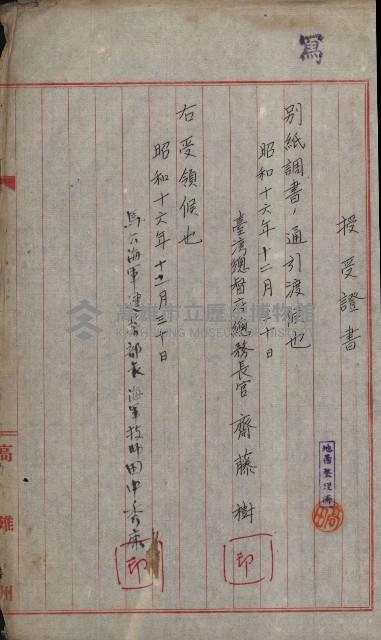 寫
授受證書
別紙調書ノ通引渡候也
昭和十六年十二月三十日
臺灣總督府總務長官 齋藤樹
印
右受領候也
昭和十六年十二月三十日
馬公海軍建築部長 海軍技師 田中秀
印
高雄州
高雄市立歷史博物館
KAOHSIUNG MUSEUM OF HISTORY